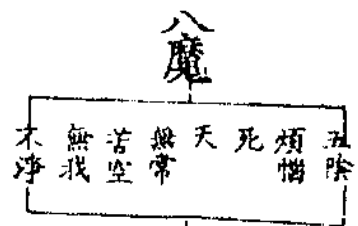 八魔
五陰
煩惱
死
天
無常
苦空
無我
不淨